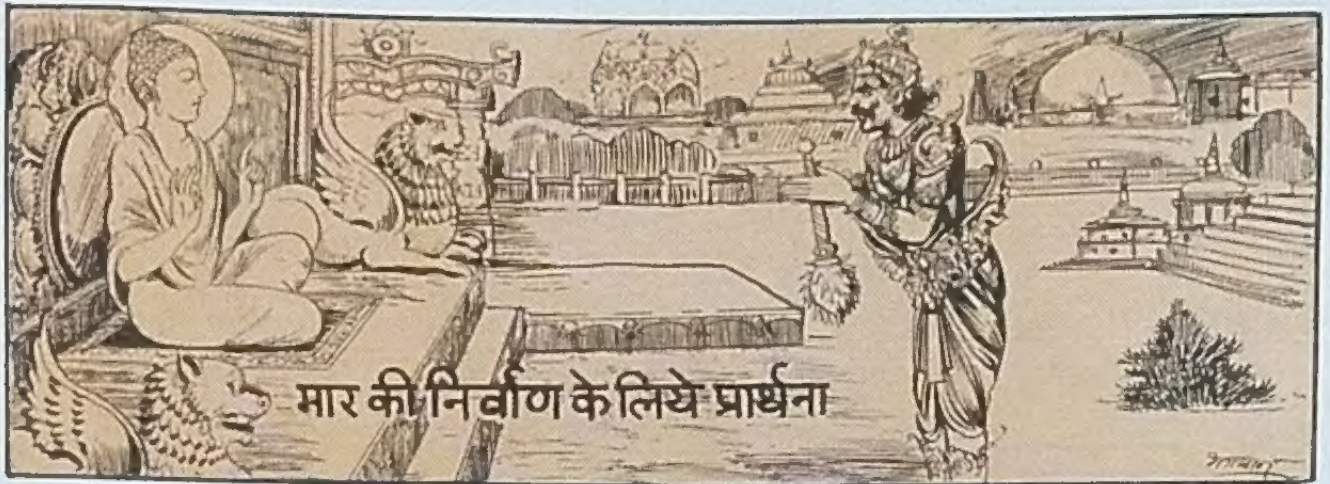 मार की निर्वाण के लिये प्रार्थना